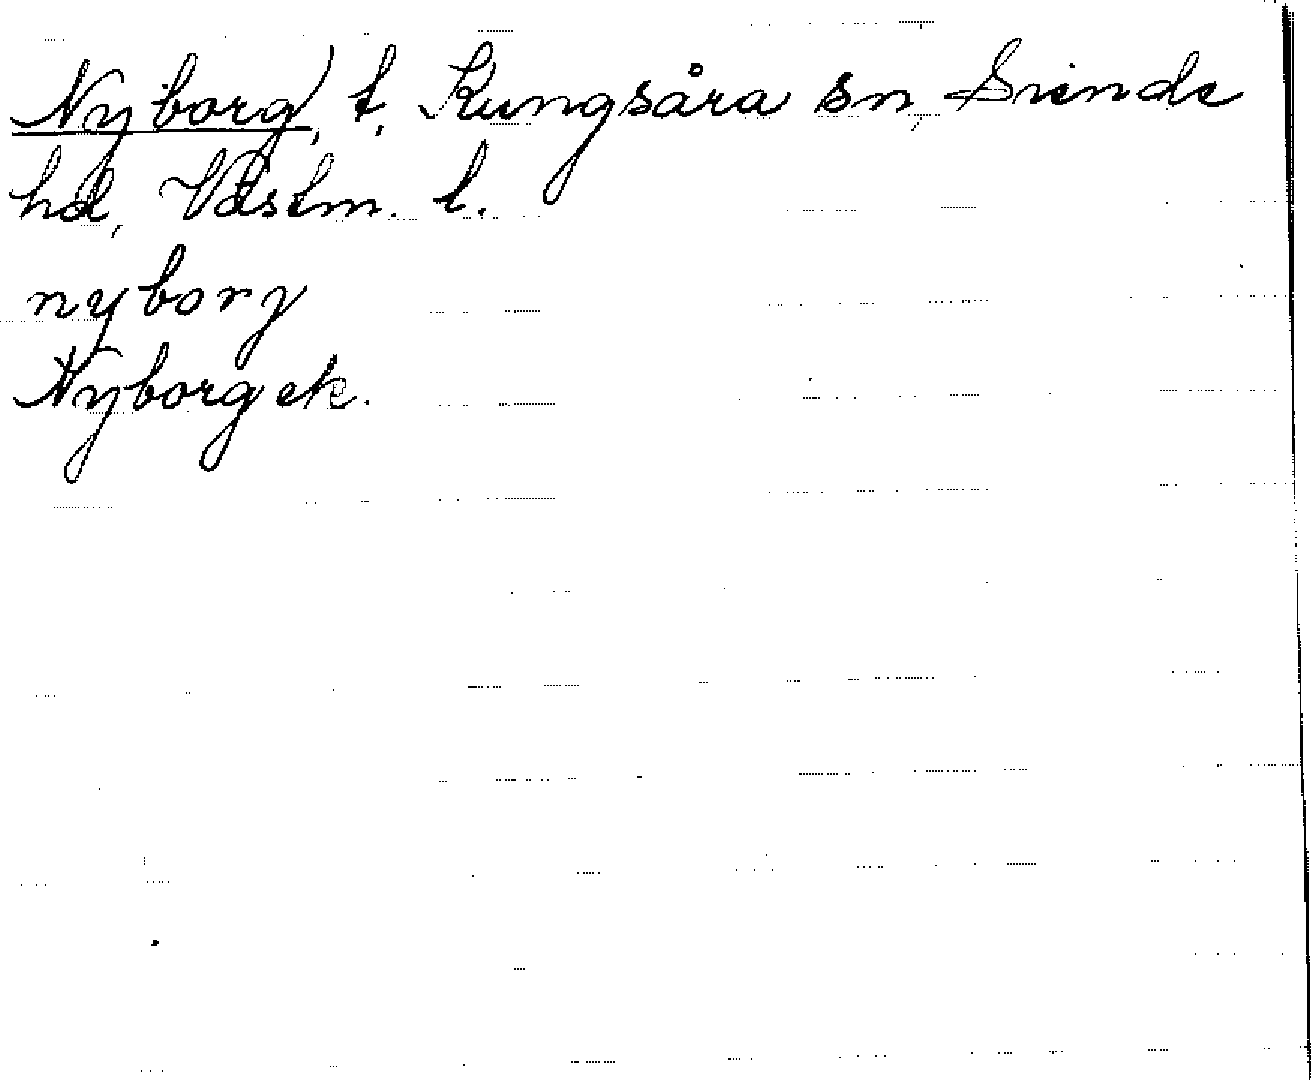 Nyborg), t, Kungsåra sn, Siende
hd, Västm. l.
nybory
Nyborg ek.